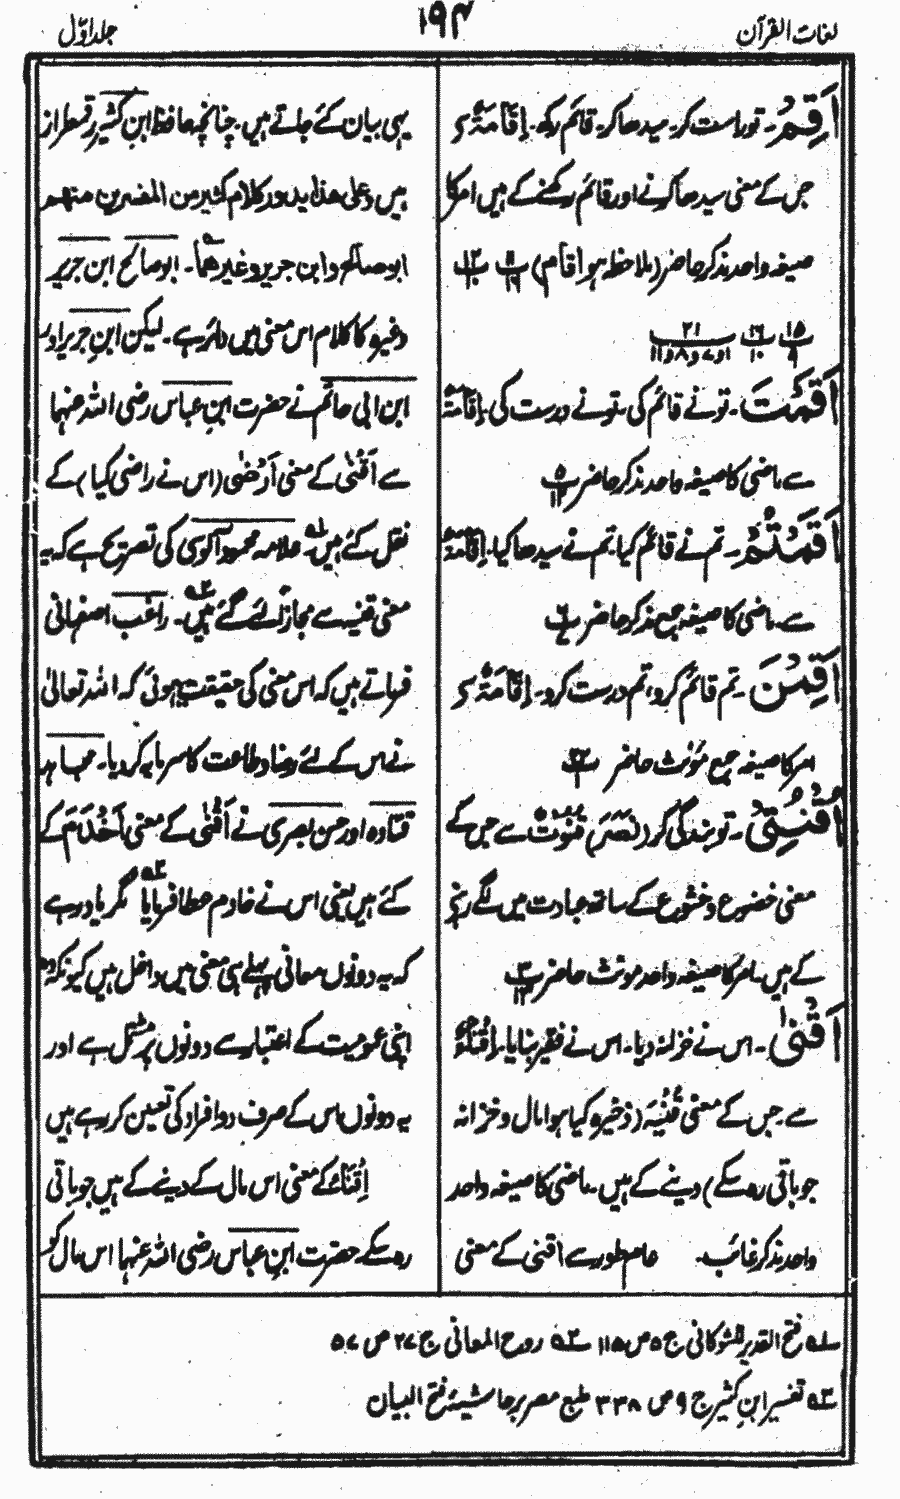 لغات القرآن
۱۹۴
جلد اوّل
اَقِمْ۔ تو راست کر۔ سیدھا کر۔ قائم رکھ۔ اِقَامَۃٌ سے
جس کے معنی سیدھا کرنے اور قائم رکھنے کے ہیں امر کا
صیغہ واحد مذکر حاضر (ملاحظہ ہو اَقَامَ)
اَقَمْتَ۔ تو نے قائم کی۔ تو نے درست کی۔ اِقَامَۃٌ
سے ماضی کا صیغہ واحد مذکر حاضر
اَقَمْتُمْ۔ تم نے قائم کیا۔ تم نے سیدھا کیا۔ اِقَامَۃٌ
سے۔ ماضی کا صیغہ جمع مذکر حاضر
اَقِمْنَ۔ تم قائم کرو، تم درست کرو۔ اِقَامَۃٌ سے
امر کا صیغہ جمع مؤنث حاضر
اُقْنُتِیْ۔ تو بندگی کر (نَصَرَ) قُنُوْتٌ سے جس کے
معنی خضوع و خشوع کے ساتھ عبادت میں لگے رہنے
کے ہیں۔ امر کا صیغہ واحد مونث حاضر
اَقْنٰی۔ اس نے خزانہ دیا۔ اس نے فقیر بنایا۔ اِقْنَاءٌ
سے۔ جس کے معنی قُنْیَۃ (ذخیرہ کیا ہوا مال و خزانہ
جو باقی رہ سکے) دینے کے ہیں۔ ماضی کا صیغہ واحد
واحد مذکر غائب۔ عام طور سے اقنی کے معنی
یہی بیان کئے جاتے ہیں۔ چنانچہ حافظ ابن کثیر رقمطراز
ہیں وعلی ھذا یدور کلام کثیر من المفسرین منھم
ابو صالح و ابن جریر وغیرھما۔ ابو صالح ابن جریر
وغیرہ کا کلام اس معنی میں دائر ہے۔ لیکن ابن جریر اور
ابن ابی حاتم نے حضرت ابن عباس رضی اللہ عنہما
سے اَقْنٰی کے معنی اَرْضٰی (اس نے راضی کیا) کے
نقل کئے ہیں۔ علامہ محمود آلوسی کی تصریح ہے کہ یہ
معنی قنیہ سے مجازاً لئے گئے ہیں۔ راغب اصفہانی
فرماتے ہیں کہ اس معنی کی حقیقت یہ ہوئی کہ اللہ تعالیٰ
نے اس کے لئے رضا و طاعت کا سرمایہ کر دیا۔ مجاہد
قتادہ اور حسن بصری نے اَقْنٰی کے معنی اَخْدَمَ کے
کئے ہیں یعنی اس نے خادم عطا فرمایا مگر یاد رہے
کہ یہ دونوں معانی پہلے ہی معنی میں داخل ہیں کیونکہ وہ
اپنی عمومیت کے اعتبار سے دونوں پر مشتمل ہے اور
یہ دونوں اس کے صرف دو افراد کی تعیین کر رہے ہیں
اِقْنَاءٌ کے معنی اس مال کے دینے کے ہیں جو باقی
رہ سکے حضرت ابن عباس رضی اللہ عنہما اس مال کو
لہ فتح القدیر للشوکانی ج ۵ ص ۱۱۵ ۲ہ روح المعانی ج ۲۷ ص ۵۷
۳ہ تفسیر ابن کثیر ج ۹ ص ۳۳۸ طبع مصر بر حاشیہ فتح البیان